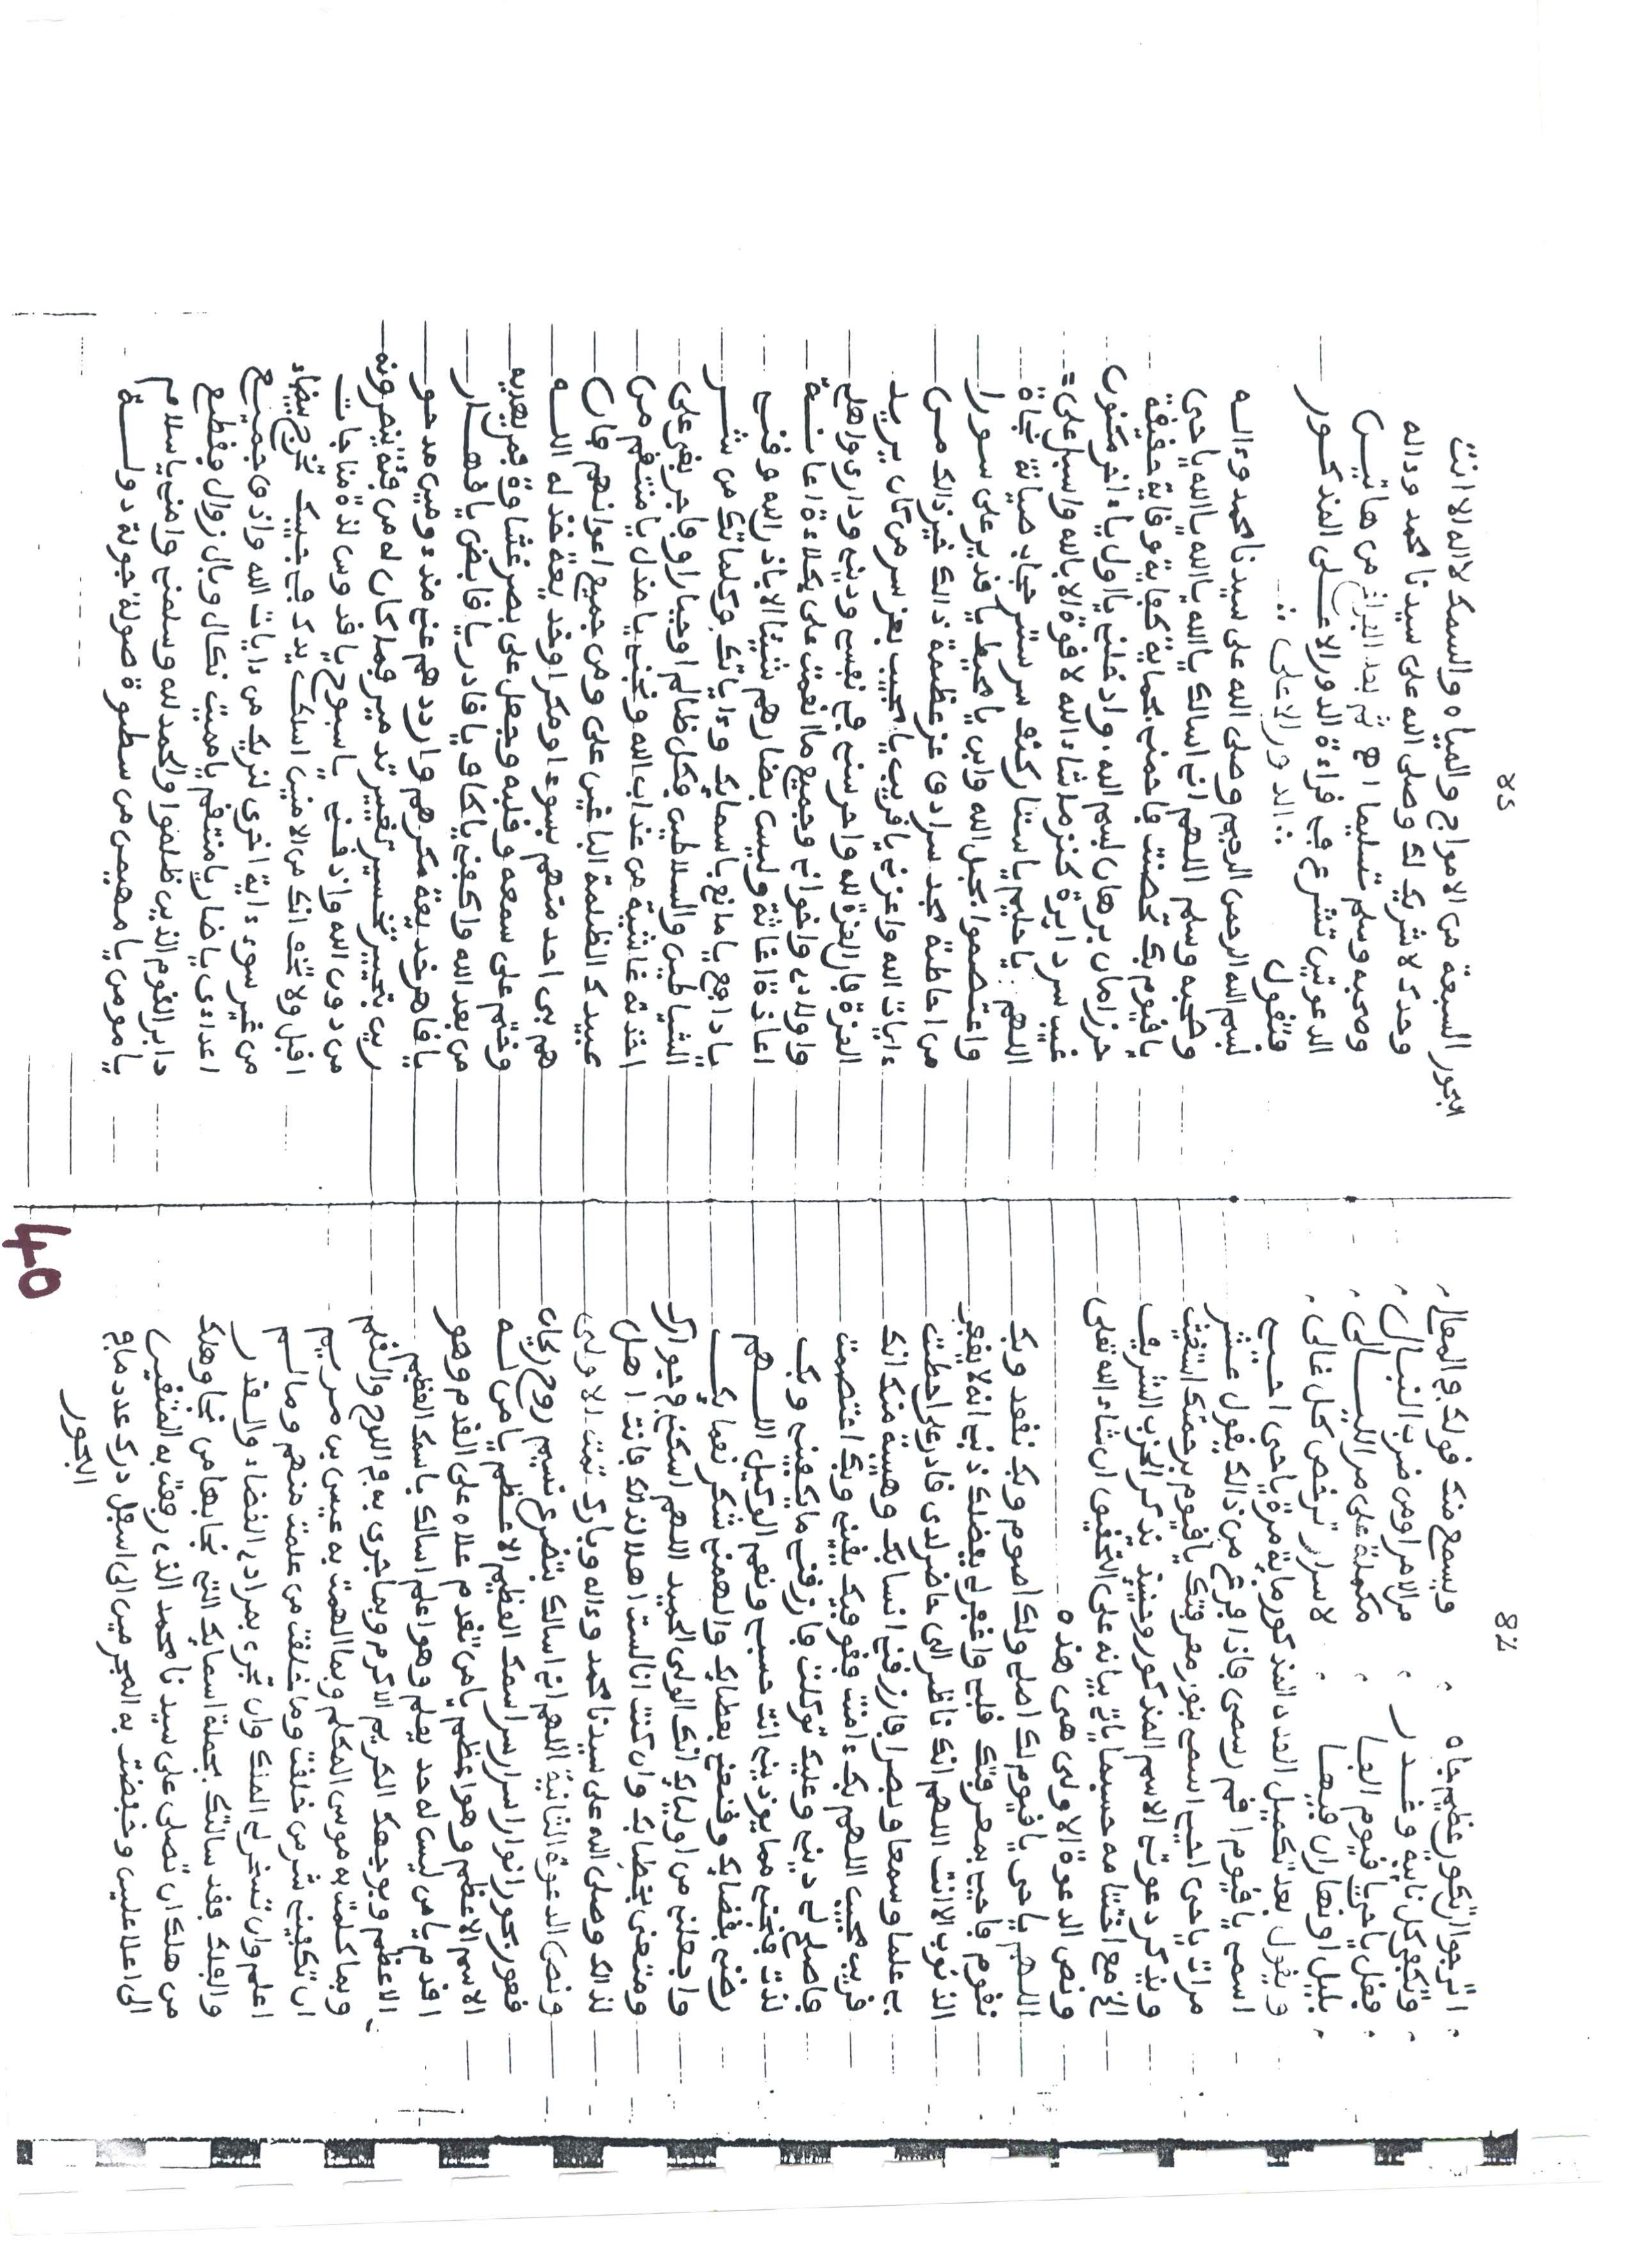 48
اترجوا ان تكون عظيم جاه ويسمع منك قولك والمعال
وتكفى كل نايبة وغدر من الامر او من ضرب النبال
فقل ياحي يا قيوم الفا مكملة على مر الليالى
بليل او نهار ان فيها لاسرار ترخص كل غالى
ويقول بعد تكميل العدد المذكور ماية مرة ياحى احيى
اسمى يا قيوم اقم رسمى فاذا فرغ من ذالك يقول عشر
مرات ياحى احيى اسمى بنور معرفتك يا قيوم برحمتك استغيث
ويذكر دعوتى الاسم المذكور وحينيذ يذكر الحزب الشريف
الخ مع اختتامه حسبما ياتى بيانه على التحقيق ان شاء الله تعلى
ونص الدعوة الاولى هى هذه
اللهم ياحى يا قيوم لك اصلى ولك اصوم وبك نقعد وبك
نقوم فاحيى بمعرفتك قلبى واغفر لى بفضلك ذنبى انه لا يغفر
الذنوب الا انت اللهم انك ناظر الى حاضر لدى قادر على احطت
بى علما وسمعا وبصرا فارزقنى انسا بك وهيبة منك انك
قريب مجيب اللهم بك ءامنت فقو فيك يقينى وبك اعتصمت
فاصلح لى دينى وعليك توكلت فارزقنى ما يكفينى وبك
لذت فنجنى مما يوذينى انت حسبى ونعم الوكيل اللهم
رضنى بقضايك وقنعنى بعطايك والهمنى شكر نعمايك
واجعلنى من اوليايك انك الولى الحميد اللهم اسكنى في جوارك
ومتعنى بخطابك وان كنت انا لست اهلا لذالك فانت اهل
لذالك وصلى الله على سيدنا محمد وءاله وبارك تمت الاولى
ونص الدعوة الثانية اللهم انى اسالك بتضرى نسيم روح ريحان
قعور بحور انوار اسرار سر اسمك العظيم الاعظم يا من له
الاسم الاعظم وهو اعظم يا من تقدم علاه على القدم وهو
اقدم يا من ليس له حد يعلم وهو اعلم اسالك باسمك العظيم
الاعظم وبوجهك الكريم الاكرم وبما جرى به في اللوح والقلم
وبما كلمت به موسى المكلم وبما الهمت به عيسى بن مريم
ان تكفينى شر من خلقت وما خلقت من علمت منهم وما لم
اعلم وان تسخر لى الملك وان تجرى بمرادى القضاء والقدر
والفلك فقد سالتك بجملة اسمايك التى نجا بها من نجا وهلك
من هلك ان تصلى على سيدنا محمد الذى رفعت به المتقين
الى اعلا عليين وخفضت به المجرمين الى اسفل درك عدد ما في
البحور
49
البحور السبعة من الامواج والمياه والسمك لا اله الا انت
وحدك لا شريك لك وصلى الله على سيدنا محمد وءاله
وصحبه وسلم تسليما اهـ ثم بعد الفراغ من هاتين
الدعوتين تشرع في قراءة الدور الاعلى المذكور
فتقول :: الدور الاعلى ::
بسم الله الرحمن الرحيم وصلى الله على سيدنا محمد وءاله
وصحبه وسلم اللهم انى اسالك يا الله يا الله يا الله ياحى
يا قيوم بك تحصنت فاحمنى بحماية كفاية وقاية حقيقة
حرز امان برهان بسم الله، وادخلنى يا اول يا ءاخر مكنون
غيب سر دايرة كنز ما شاء الله لا قوة الا بالله واسبل على
اللهم: يا حليم يا ستار كنف سر ستر حجاب صيانة نجاة
واعتصموا بحبل الله وابن يا محيط يا قدير على سورا
من احاطة مجد سرادق عز عظمة ذالك خير ذالك من
ءايات الله واعزنى يا قريب يا مجيب بعز سر من كان يريد
العزة فان العزة لله واحرسنى في نفسى ودينى ودارى واهلى
واولادى واخوانى وجميع ما انعمت على بكلاءة اعانة
اعاذة اغاثة وليس بضارهم شيئا الا باذن الله وقنى
يا دافع يا مانع باسمايك وءاياتك وكلماتك من شر
الشياطين والسلاطين فكل ظالم او جبار او فاجر بغى على
اخذته غاشية من عذاب الله ونجنى يا مذل يا منتقم من
عبيدك الظلمة الباغين على ومن جميع اعوانهم فان
هم بى احد منهم بسوء او مكر او خديعة خذله الله
وختم على سمعه وقلبه وجعل على بصره غشاوة فمن يهديه
من بعد الله واكفنى يا كافى يا قادر يا قابض يا قهار
يا قاهر خديعة مكرهم واردد هم عنى مذءومين مدحو
رين بتحسير تخسير تغيير تدمير فما كان له من فئة ينصرونه
من دون الله واذقنى يا سبوح يا قدوس لذة مناجات
اقبل ولا تخف انك من الامنين اسلك يدك في جيبك تخرج بيضاء
من غير سوء ءاية اخرى لنريك من ءايات الله واذق جميع
اعداءى يا ضار يا منتقم يا مميت نكال وبال زوال فقطع
دابر القوم الذين ظلموا والحمد لله وسلمنى وامنى يا سلام
يا مومن يا مهيمن من سطوة صولة جولة دولة
40